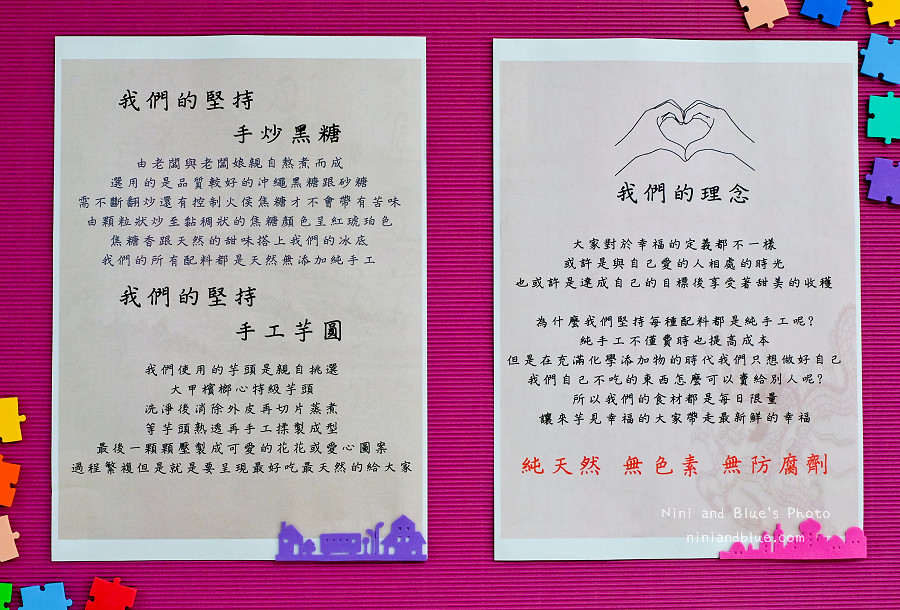 我們的堅持
手炒黑糖
由老闆與老闆娘親自熬煮而成
選用的是品質較好的沖繩黑糖跟砂糖
需不斷翻炒還有控制火侯焦糖才不會帶有苦味
由顆粒狀炒至黏稠狀的焦糖顏色呈紅琥珀色
焦糖香跟天然的甜味搭上我們的冰底
我們的所有配料都是天然無添加純手工
我們的堅持
手工芋圓
我們使用的芋頭是親自挑選
大甲檳榔心特級芋頭
洗淨後消除外皮再切片蒸煮
等芋頭熟透再手工揉製成型
最後一顆顆壓製成可愛的花花或愛心圖案
過程繁複但是就是要呈現最好吃最天然的給大家
我們的理念
大家對於幸福的定義都不一樣
或許是與自己愛的人相處的時光
也或許是達成自己的目標後享受著甜美的收穫
為什麼我們堅持每種配料都是純手工呢?
純手工不僅費時也提高成本
但是在充滿化學添加物的時代我們只想做好自己
我們自己不吃的東西怎麼可以賣給別人呢?
所以我們的食材都是每日限量
讓來芋見幸福的大家帶走最新鮮的幸福
純天然 無色素 無防腐劑
Nini and Blue's Photo
niniandblue.com